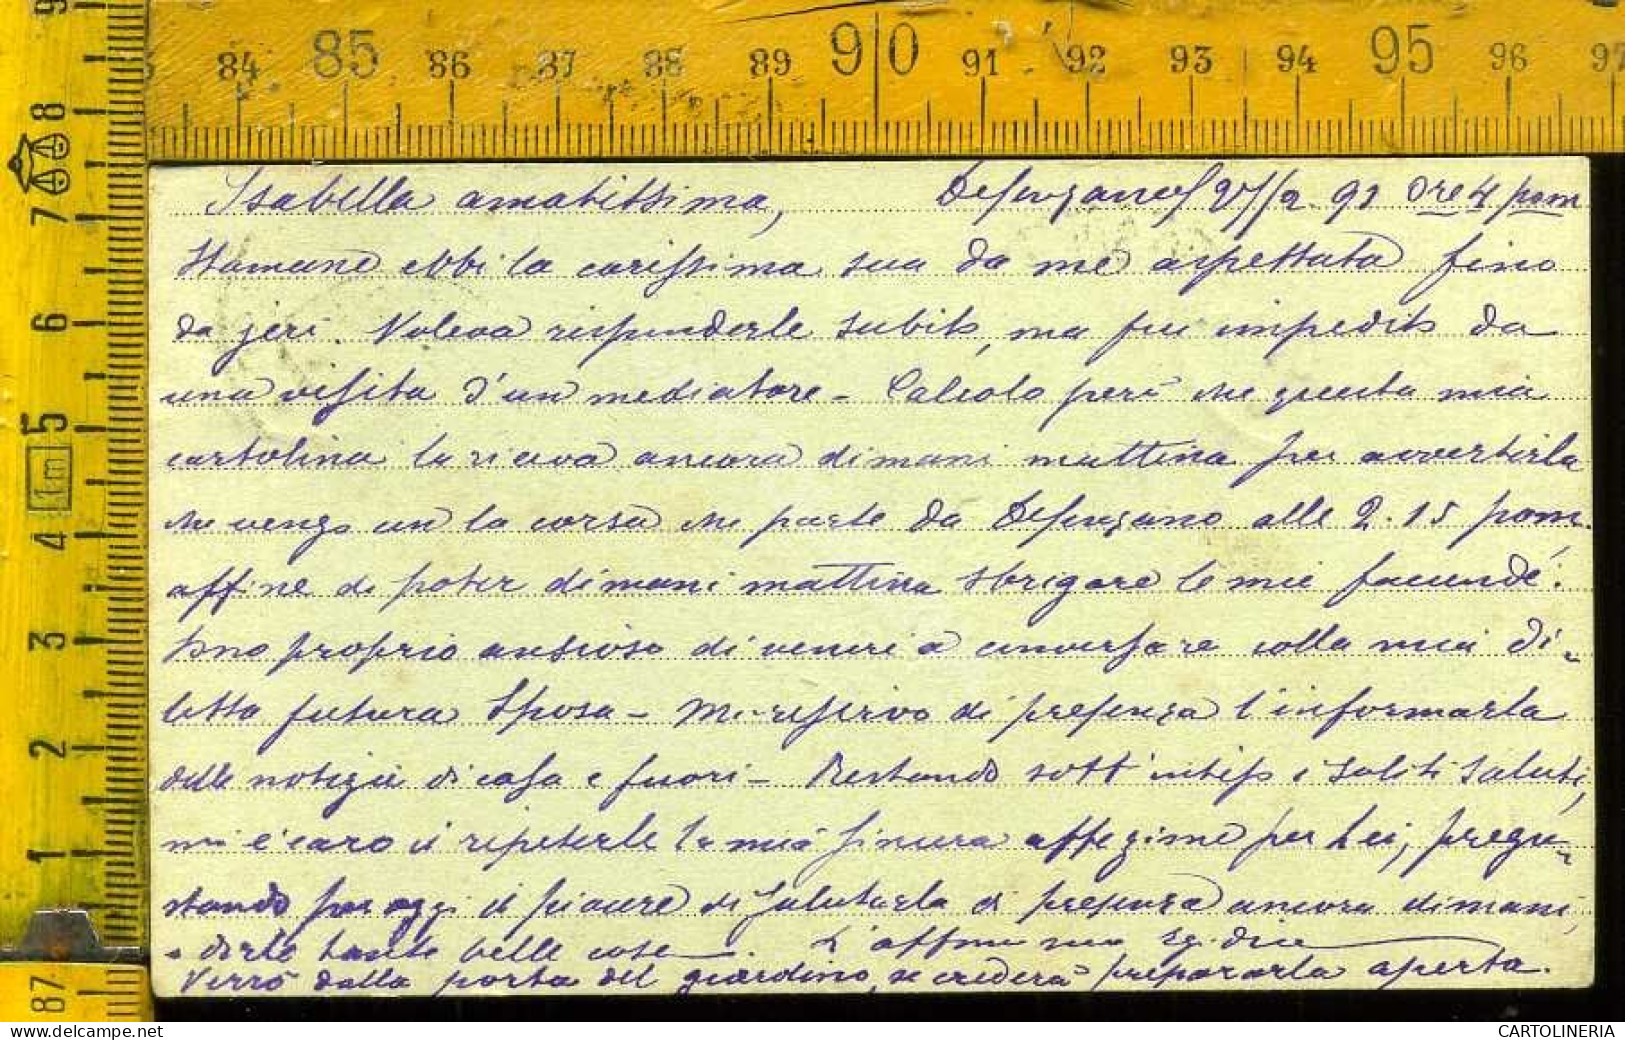 84 85 86 87 88 89 90 91 92 93 94 95 96 97
9
8
7
6
5
1m
4
3
2
1
87
Isabella amatissima, Desenzano 27/2 92 Ore 4 pom
Stamane ebbi la carissima sua da me aspettata fino
da jeri. Voleva risponderle subito, ma fui impedito da
una visita d'un mediatore - Calcolo però che questa mia
cartolina la riceva ancora dimani mattina per avvertirla
che vengo con la corsa che parte da Desenzano alle 2.15 pom.
affine di poter dimani mattina sbrigare le mie faccende.
Sono proprio ansioso di venire a conversare colla mia di-
letta futura Sposa - Mi riservo di presenza l'informarla
delle notizie di casa e fuori - Restando sott'inteso i soliti saluti,
mi è caro il ripeterle la mia sincera affezione per Lei, pregu-
stando per oggi il piacere di salutarla di presenza ancora dimani,
e dirle tante belle cose. L'affmo suo Egidio
Verrò dalla porta del giardino, se crederà prepararla aperta.
CARTOLINERIA
www.delcampe.net